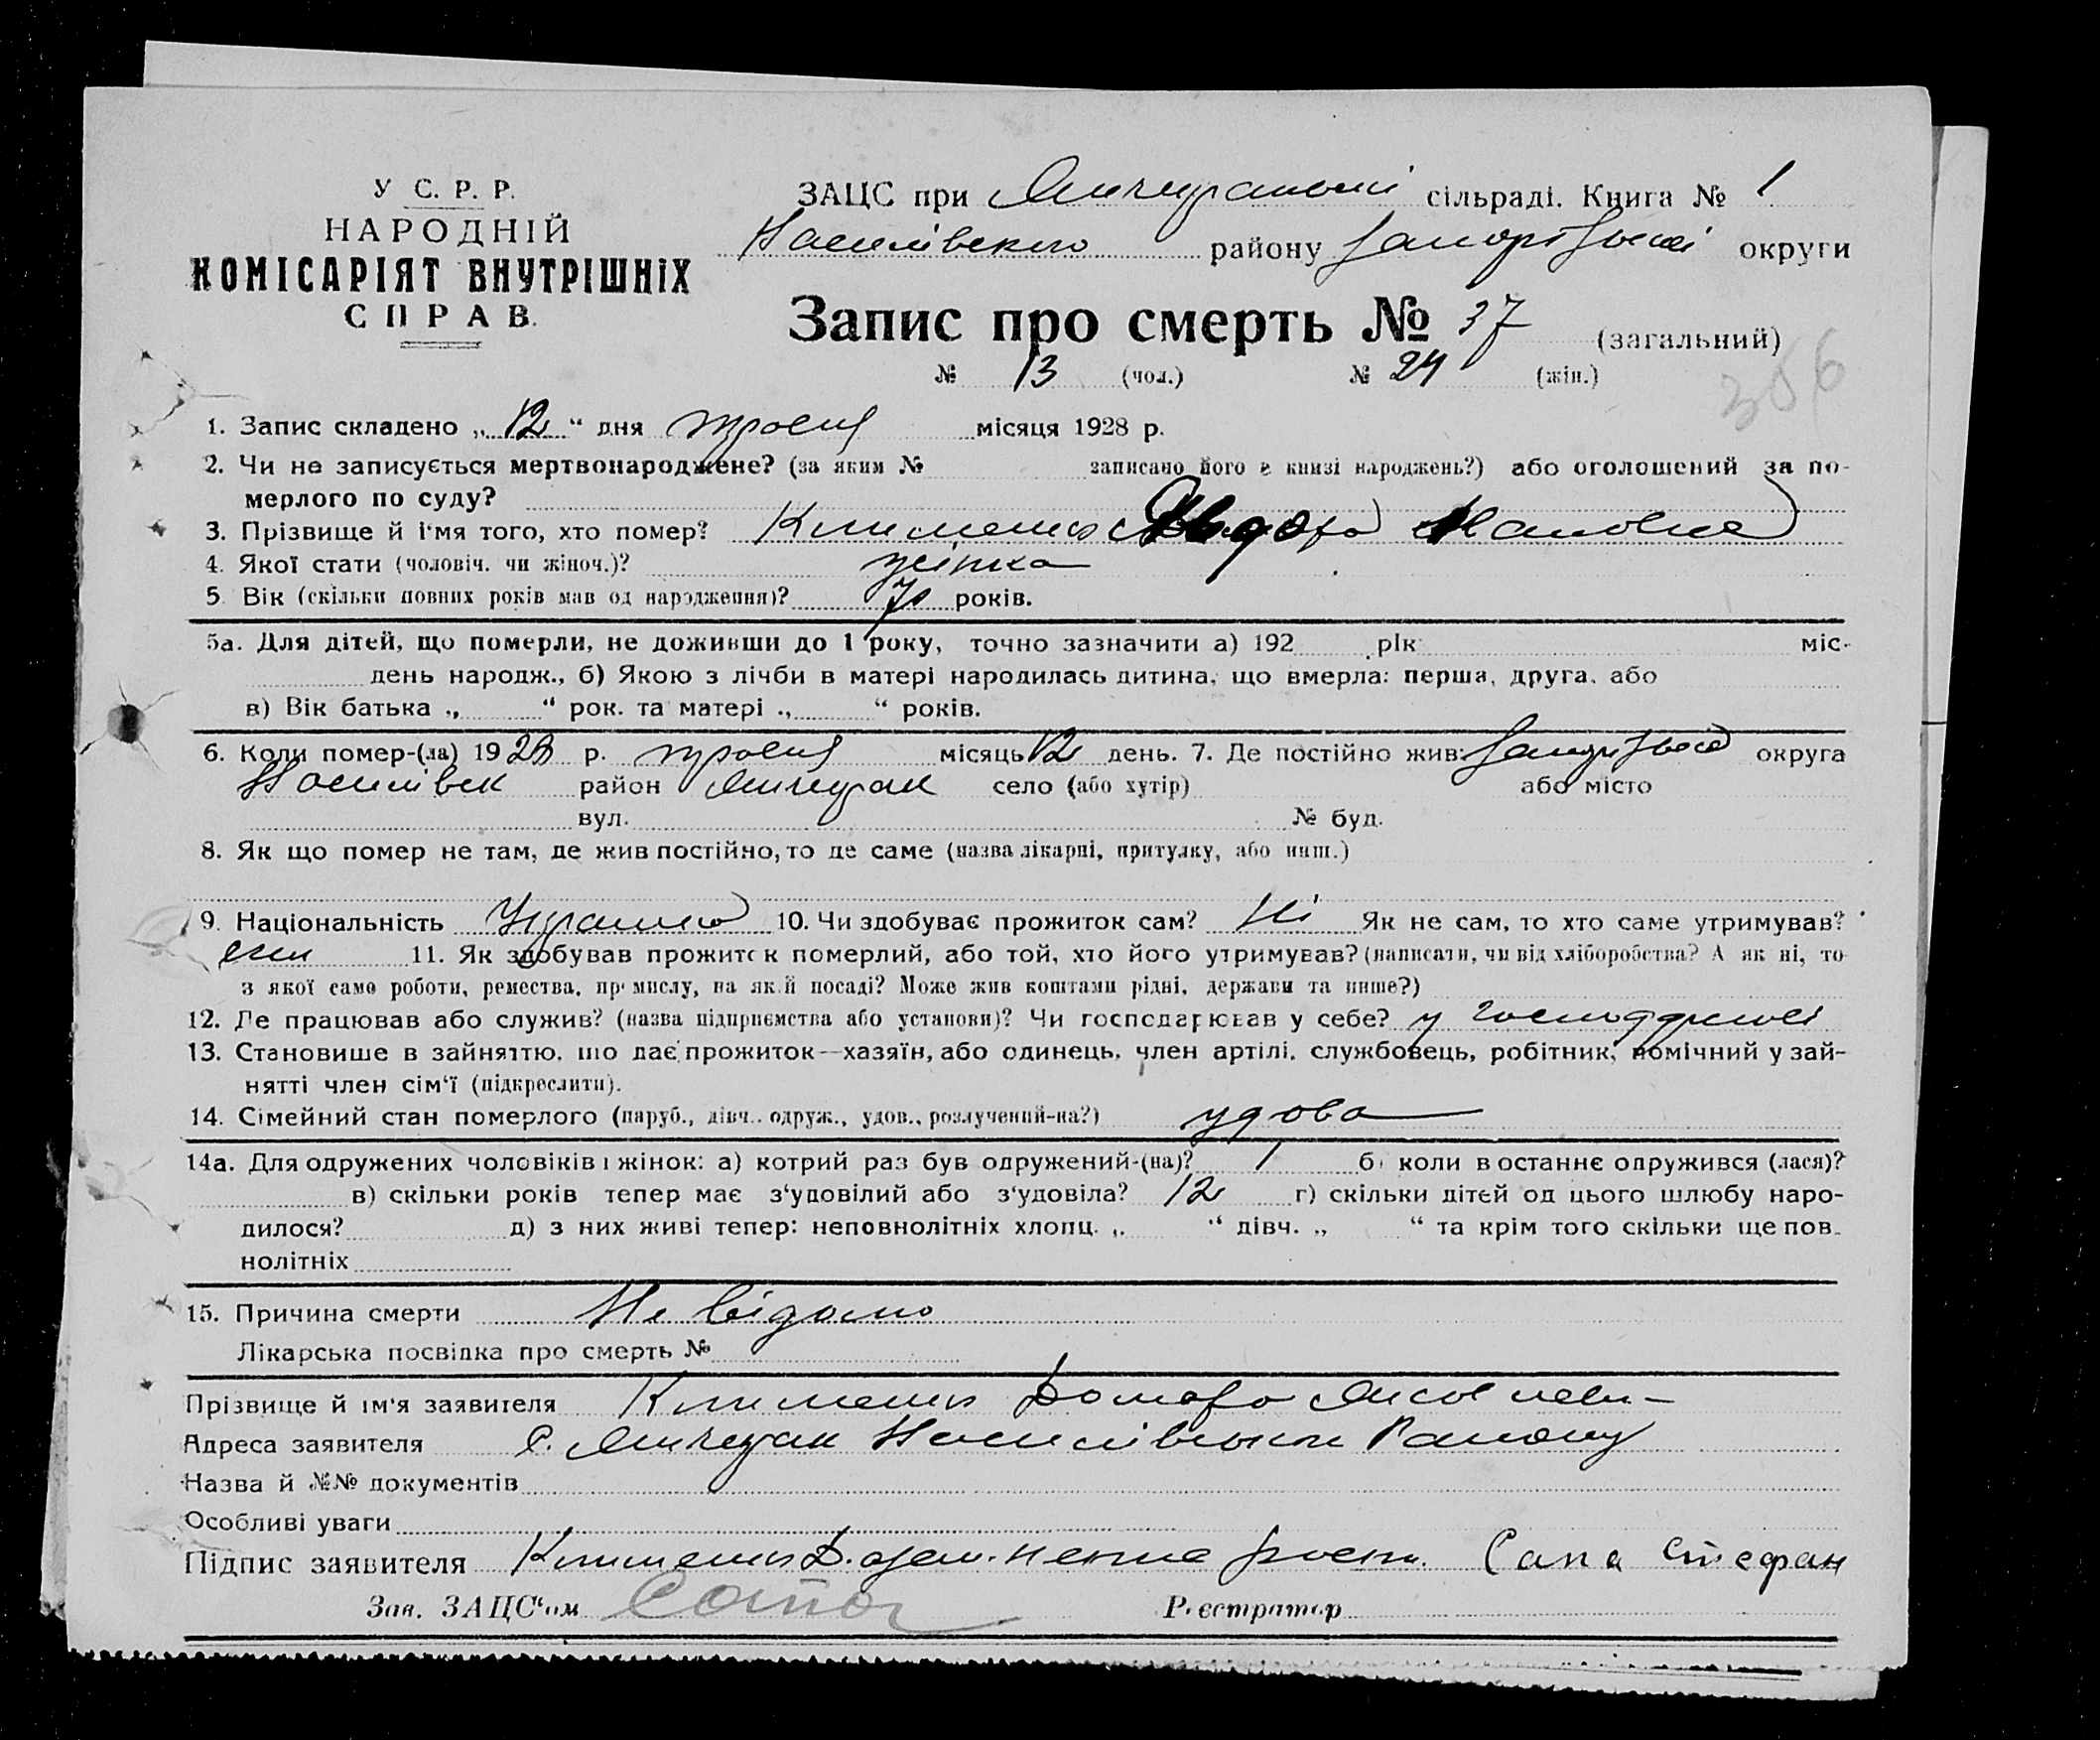 У С. Р. Р.
НАРОДНІЙ
КОМІСАРІЯТ ВНУТРІШНІХ
СПРАВ.
ЗАЦС при Янчекракській сільраді. Книга № 1
Василівского району Запорізької округи
Запис про смерть № 37 (загальний)
№ 13 (чол.) № 24 (жін.)
366
1. Запис складено „ 12 “ дня травня місяця 1928 р.
2. Чи не записується мертвонароджене? (за яким № записано його в книзі народжень?) або оголошений за по-
мерлого по суду?
3. Прізвище й і'мя того, хто помер? Клименко
4. Якої стати (чоловіч. чи жіноч.)? жінка
5. Вік (скільки повних років мав од народження)? років.
5а. Для дітей, що померли, не доживши до 1 року, точно зазначити а) 192 рік міс-
день народж., б) Якою з лічби в матері народилась дитина, що вмерла: перша, друга, або
в) Вік батька „ “ рок. та матері „ “ років.
6. Коли помер-(ла) 1928 р. травня місяць 12 день. 7. Де постійно жив: Запорізька округа
Василівск район Янчекрак село (або хутір) або місто
вул. № буд.
8. Як що помер не там, де жив постійно, то де саме (назва лікарні, притулку, або инш.)
9. Національність Українка 10. Чи здобуває прожиток сам? Ні Як не сам, то хто саме утримував?
син 11. Як здобував прожиток померлий, або той, хто його утримував? (написати, чи від хліборобства? А як ні, то
з якої само роботи, ремества, промислу, на якій посаді? Може жив коштами рідні, держави та инше?)
12. Де працював або служив? (назва підприємства або установи)? Чи господарював у себе? у господарстві
13. Становище в зайняттю, що дає прожиток—хазяїн, або одинець, член артілі, службовець, робітник, помічний у зай-
нятті член сім'ї (підкреслити).
14. Сімейний стан померлого (паруб., дівч., одруж., удов., розлучений-на?) удова
14а. Для одружених чоловіків і жінок: а) котрий раз був одружений-(на)? 1 б) коли в останнє одружився (лася)?
в) скільки років тепер має з'удовілий або з'удовіла? 12 г) скільки дітей од цього шлюбу наро-
дилося? д) з них живі тепер: неповнолітніх хлопц. „ “ дівч. „ “ та крім того скільки ще пов-
нолітніх
15. Причина смерти Не відомо
Лікарська посвідка про смерть №
Прізвище й ім'я заявителя Клименко
Адреса заявителя С. Янчекрак Василівського Району
Назва й №№ документів
Особливі уваги
Підпис заявителя Клименко Сапа Стефан
Зав. ЗАЦС'ом Сапа Реєстратор